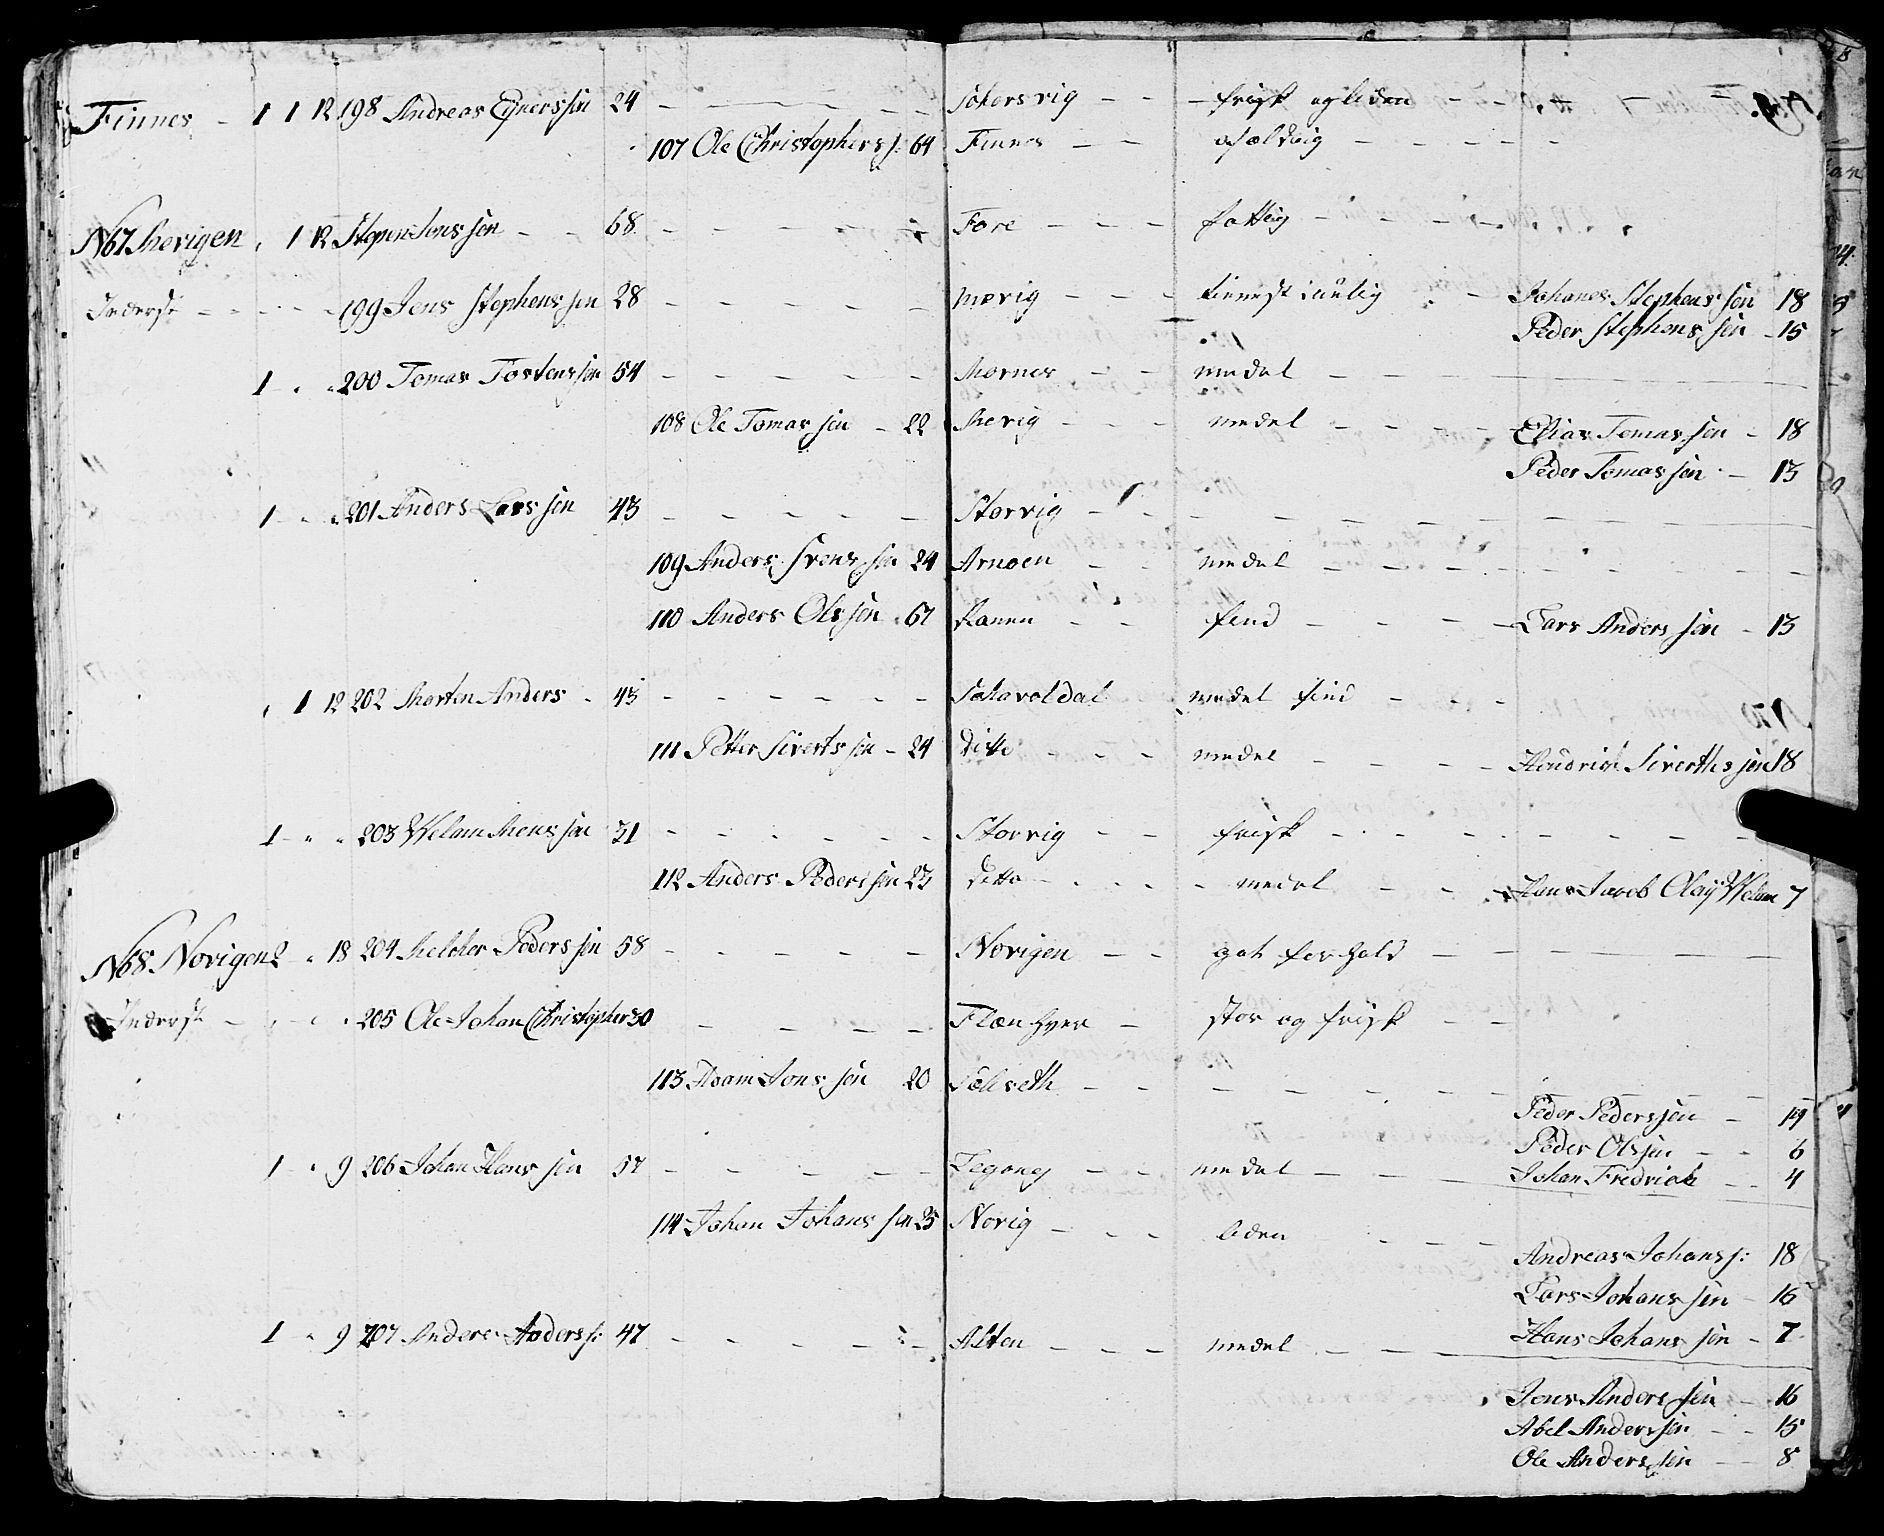 Finnes - 1 1 12 198 Andreas Ejnerssøn 24 - - - - - frisk og liden - -
107 Ole Christophers s: 64 Finnes - -
N67 1 12 Stepen Jenssøn - - 68 - - - - - Fore - - - fattig - - - -
Inderst - - - - 199 Jens Stephenssøn 28 - - - - - - - - Johanes Stephenssøn 18
Peder Stephenssøn - 15
1 200 Tomas Tostenssøn 54 - - - - - - - medel - -
108 Ole Tomassøn - 22 - - - medel - - - - Elias Tomassøn - 18
Peder Tomassøn - 13
1 201 Anders Larssøn 43 - - - - - Storvig - - - - - - - -
109 Anders Svenssøn 24 Arnøen - - medel - - - - - - -
110 Anders Olssøn 67 Ranen - - find - - - - Lars Anderssøn - 13
1 12 202 Morten Anders - 43 - - - - - - medel find - - -
111 Petter Sivertssøn - 24 Ditto - - - medel - - - - Hendrich Siverthssøn 18
1 203 Welam Monssøn 31 - - - - - Storvig - - frisk - - - - - - -
112 Anders Pederssøn 23 Ditto - - - - medel - - - Hans Jacob Olaij Welam 7
N68 Norigen 2 18 204 Melcher Pederssøn 58 - - - - - Norigen - - got forhold - - - - - -
Inderst - 205 Ole Johan Christopher 30 - - - - - - stor og frisk - -
113 Adam Jonssøn 20 - - - - - - - -
Peder Pederssøn - 19
Peder Olssøn - - 6
1 9 206 Johan Hanssøn 57 - - - - - - - medel - - - Johan Fredrich - - 4
114 Johan Johanssøn 25 Norig - - - liden - - - -
Andreas Johans s: 18
Lars Johanssøn - 16
1 9 207 Anders Anders s: 47 - - - - - Alsten - - - medel - - - Hans Johanssøn - 7
Jens Anderssøn - 16
Abel Anderssøn - - 15
Ole Anderssøn - - 8